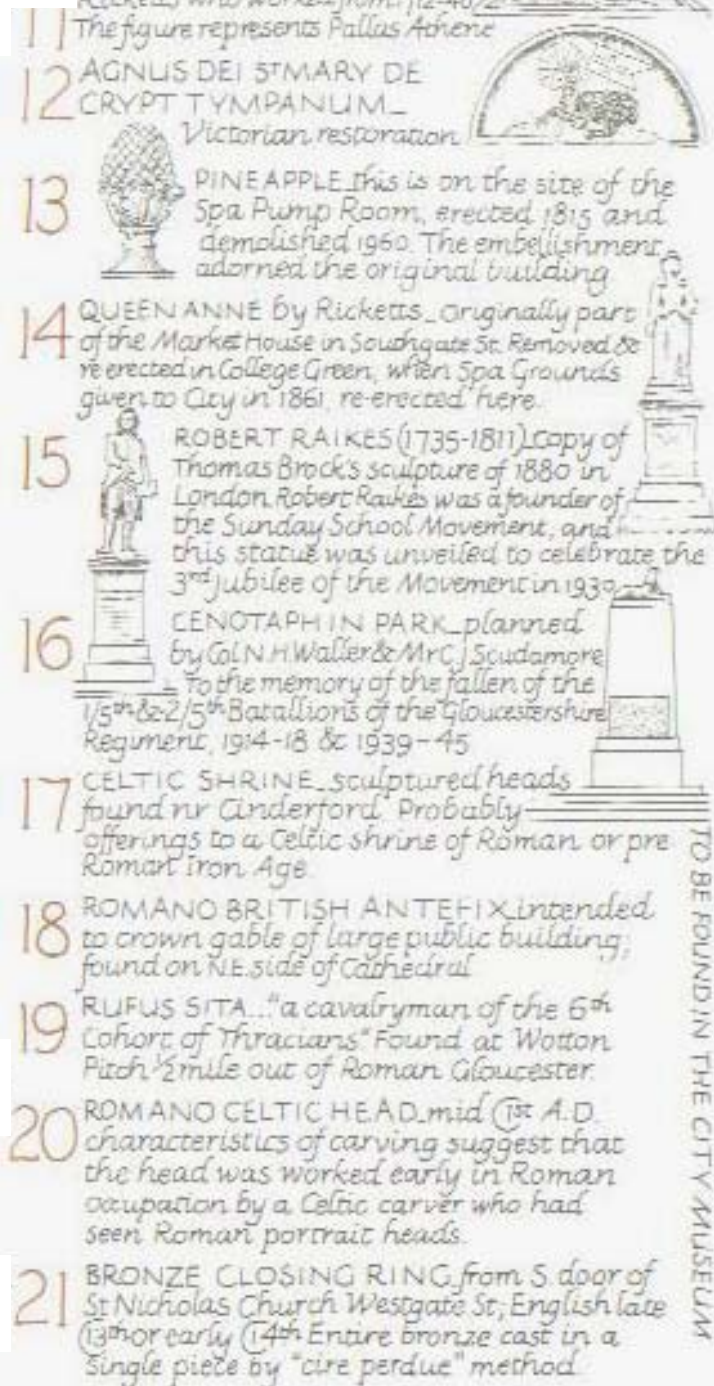 Ricketts who worked from
11 The figure represents Pallas Athene
12 AGNUS DEI ST MARY DE
CRYPT TYMPANUM_
Victorian restoration
13 PINEAPPLE_this is on the site of the
Spa Pump Room, erected 1815 and
demolished 1960. The embellishment
adorned the original building
14 QUEEN ANNE by Ricketts_originally part
of the Market House in Southgate St. Removed &
re erected in College Green, when Spa Grounds
given to City in 1861, re-erected here.
15 ROBERT RAIKES (1735-1811)_copy of
Thomas Brock's sculpture of 1880 in
London. Robert Raikes was a founder of
the Sunday School Movement, and
this statue was unveiled to celebrate the
3rd Jubilee of the Movement in 1930
16 CENOTAPH IN PARK_planned
by Col N.H. Waller & Mr C J Scudamore
To the memory of the fallen of the
1/5th & 2/5th Batallions of the Gloucestershire
Regiment, 1914-18 & 1939-45
17 CELTIC SHRINE_sculptured heads
found nr Cinderford Probably
offerings to a Celtic shrine of Roman or pre
Roman Iron Age.
18 ROMANO BRITISH ANTEFIX_intended
to crown gable of large public building;
found on N.E. side of Cathedral
19 RUFUS SITA..."a cavalryman of the 6th
Cohort of Thracians" Found at Wotton
Pitch ½ mile out of Roman Gloucester.
20 ROMANO CELTIC HEAD_mid C1st A.D.
characteristics of carving suggest that
the head was worked early in Roman
ocupation by a Celtic carver who had
seen Roman portrait heads.
21 BRONZE CLOSING RING from S. door of
St Nicholas Church Westgate St; English late
C13th or early C14th Entire bronze cast in a
single piece by "cire perdue" method.
TO BE FOUND IN THE CITY MUSEUM